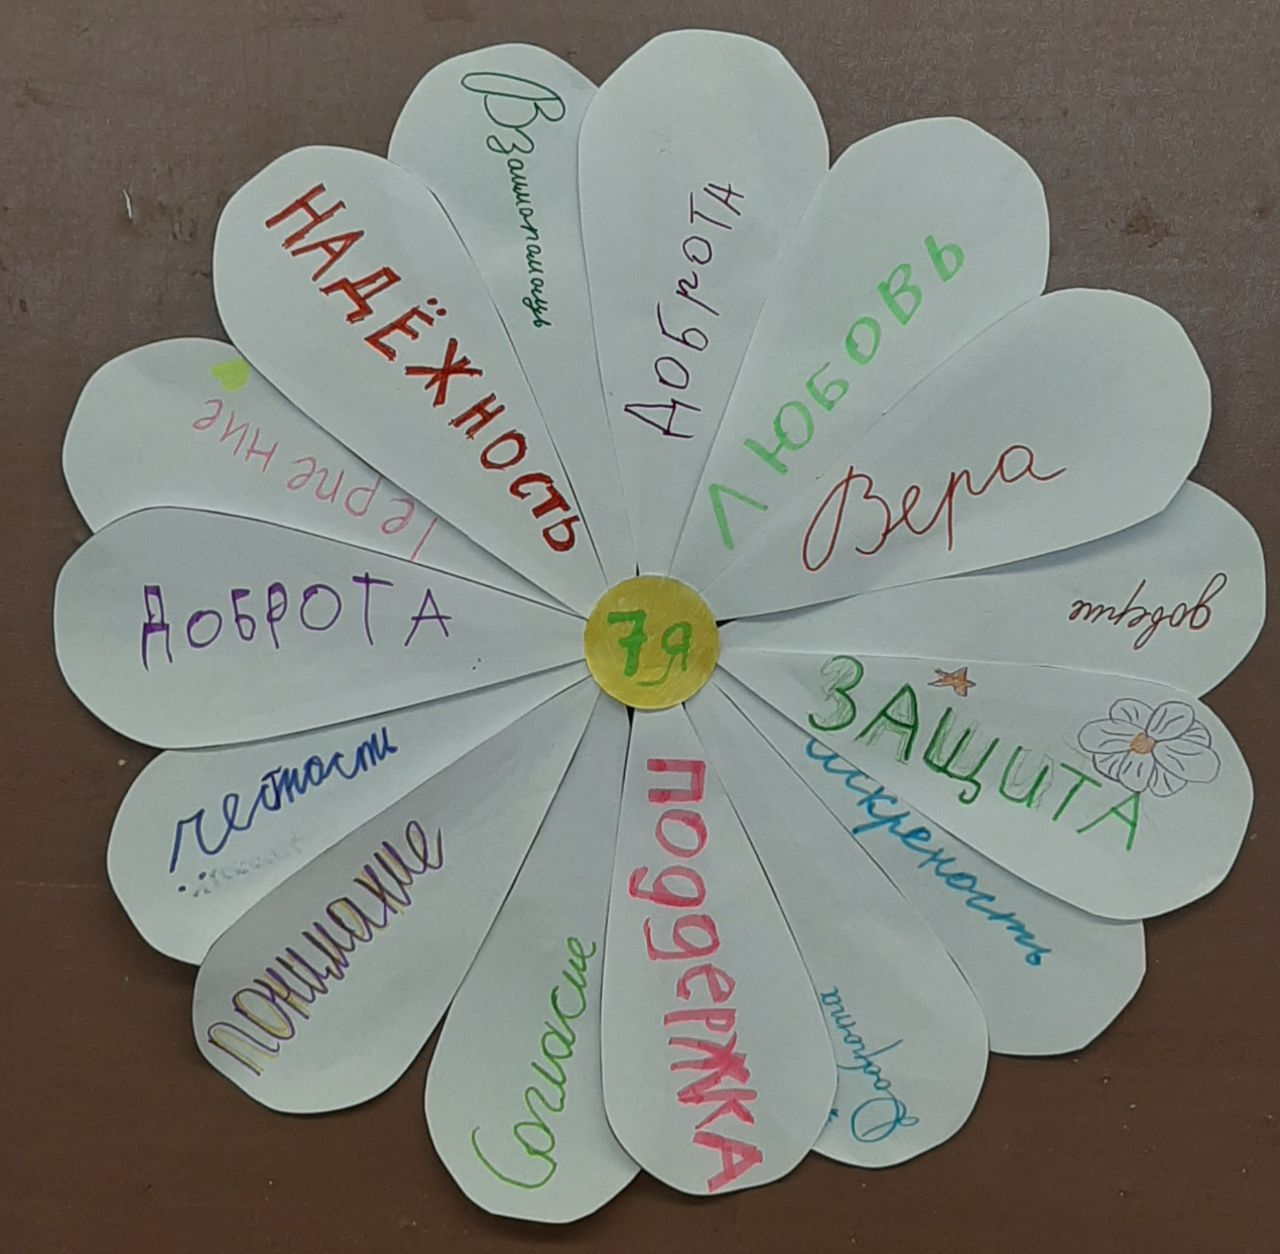 Взаимопомощь
ДОБРОТА
ЛЮБОВЬ
Вера
доверие
ЗАЩИТА
искреность
Доброта
поддержка
Согласие
понимание
честность
ДОБРОТА
Терпение
НАДЁЖНОСТЬ
7я